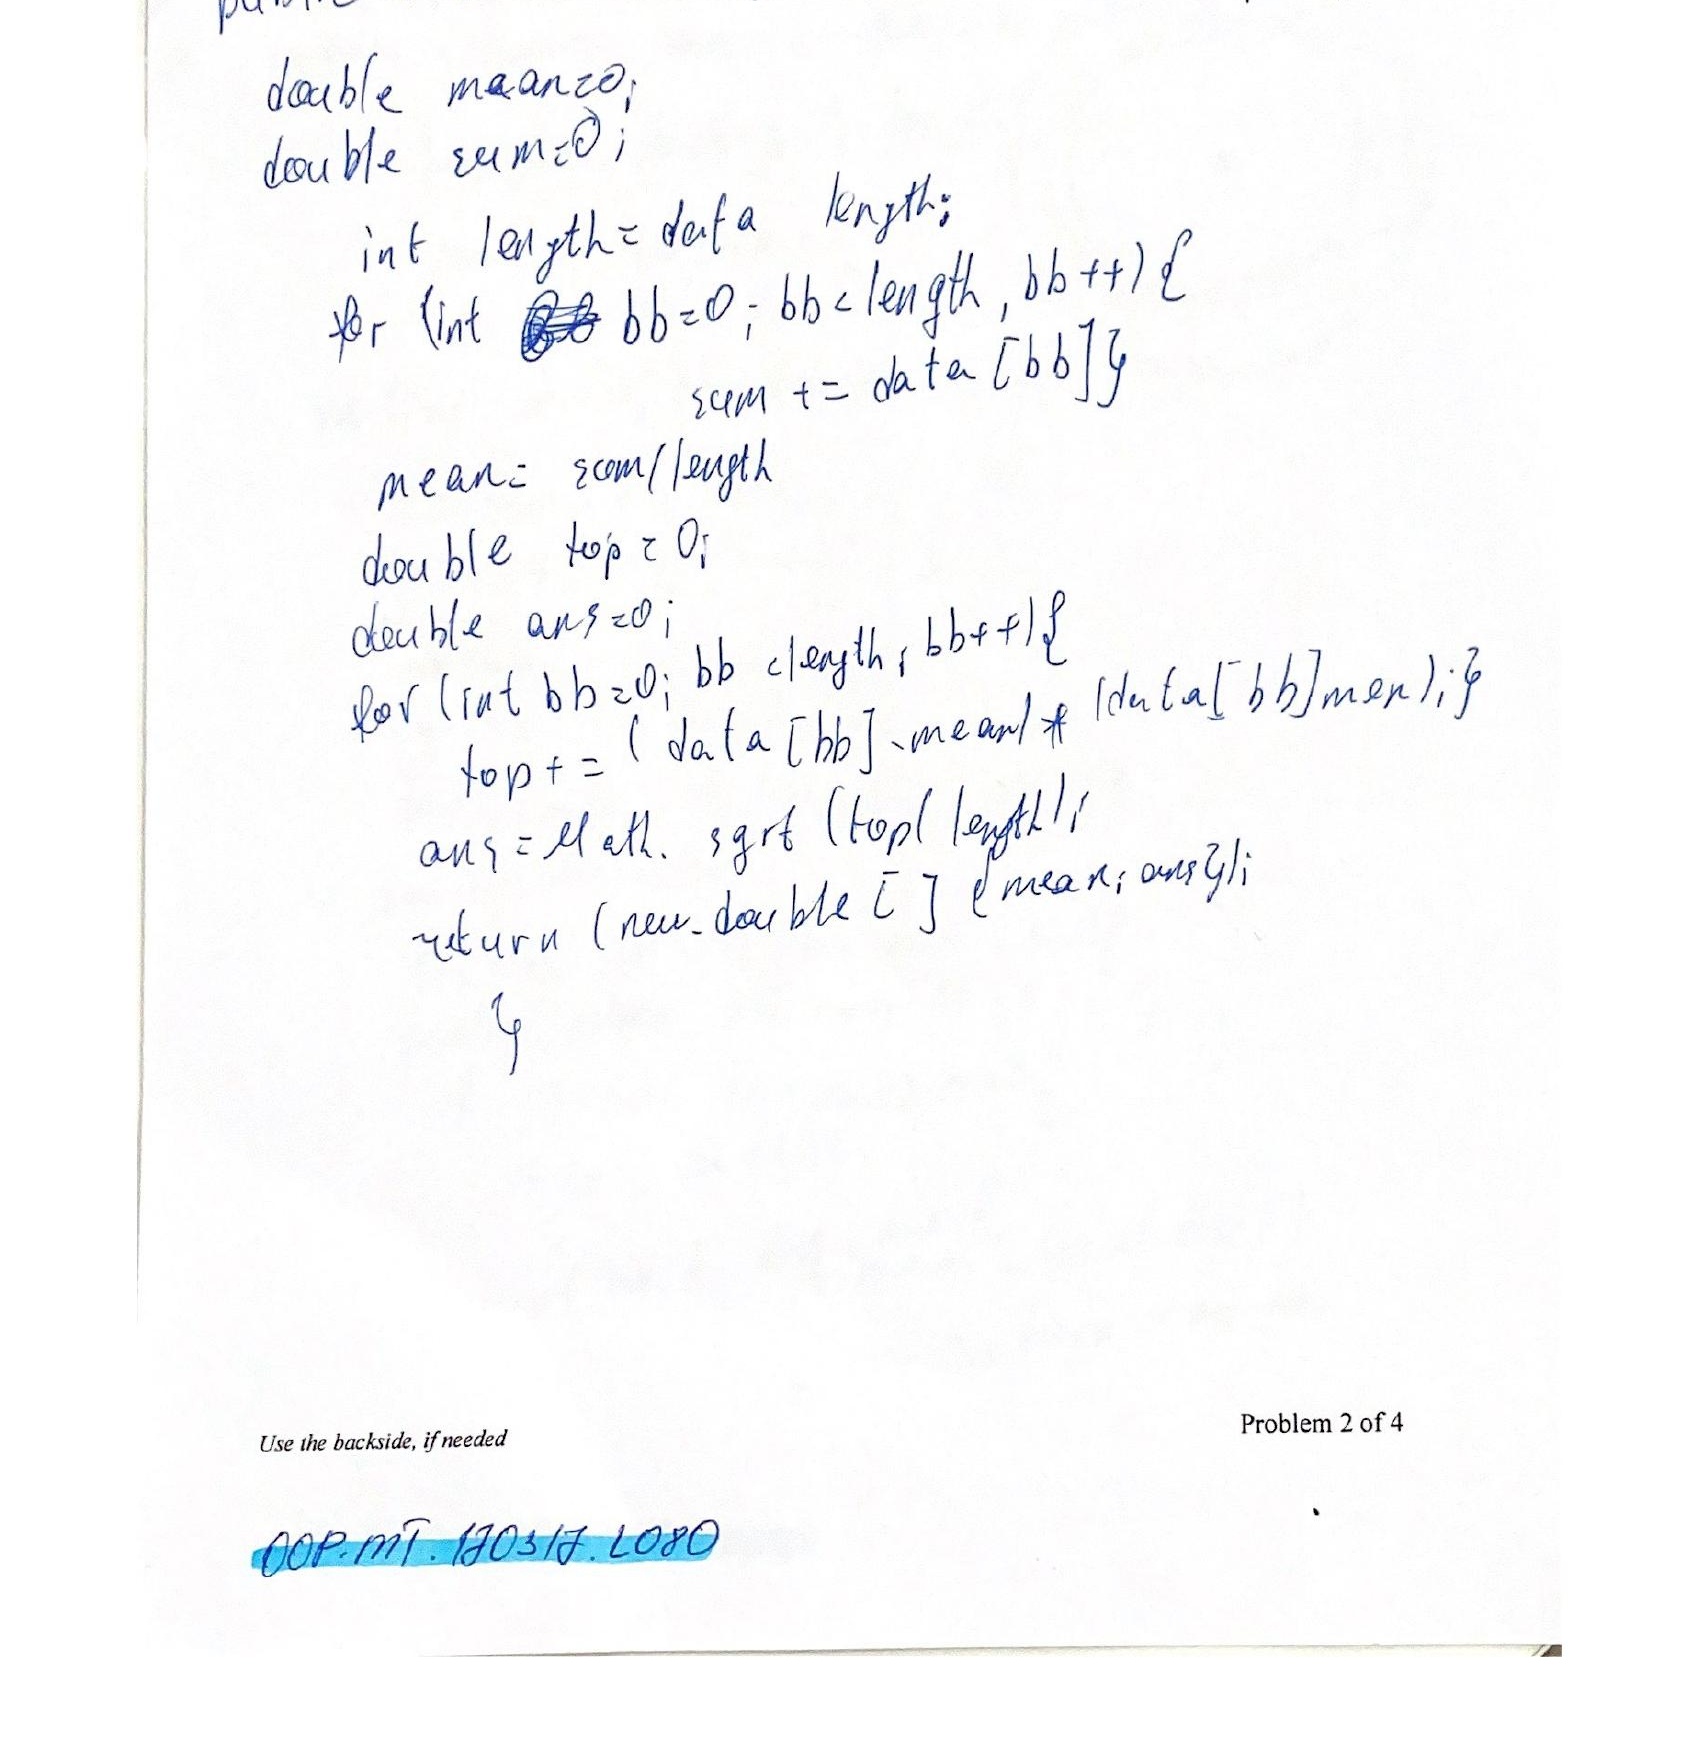 double mean=0;
double sum=0;
int length= data length;
for (int bb=0; bb<length, bb++) {
sum += data [bb]}
mean= sum/length
double top = 0;
double ans=0;
for (int bb=0; bb <length; bb++){
top+= (data [bb]-mean) * (data[bb]men);}
ans = Math. sqrt (top/ length);
return (new double [] {mean; ans});
}
Use the backside, if needed
Problem 2 of 4
OOP.MT.170317.L080